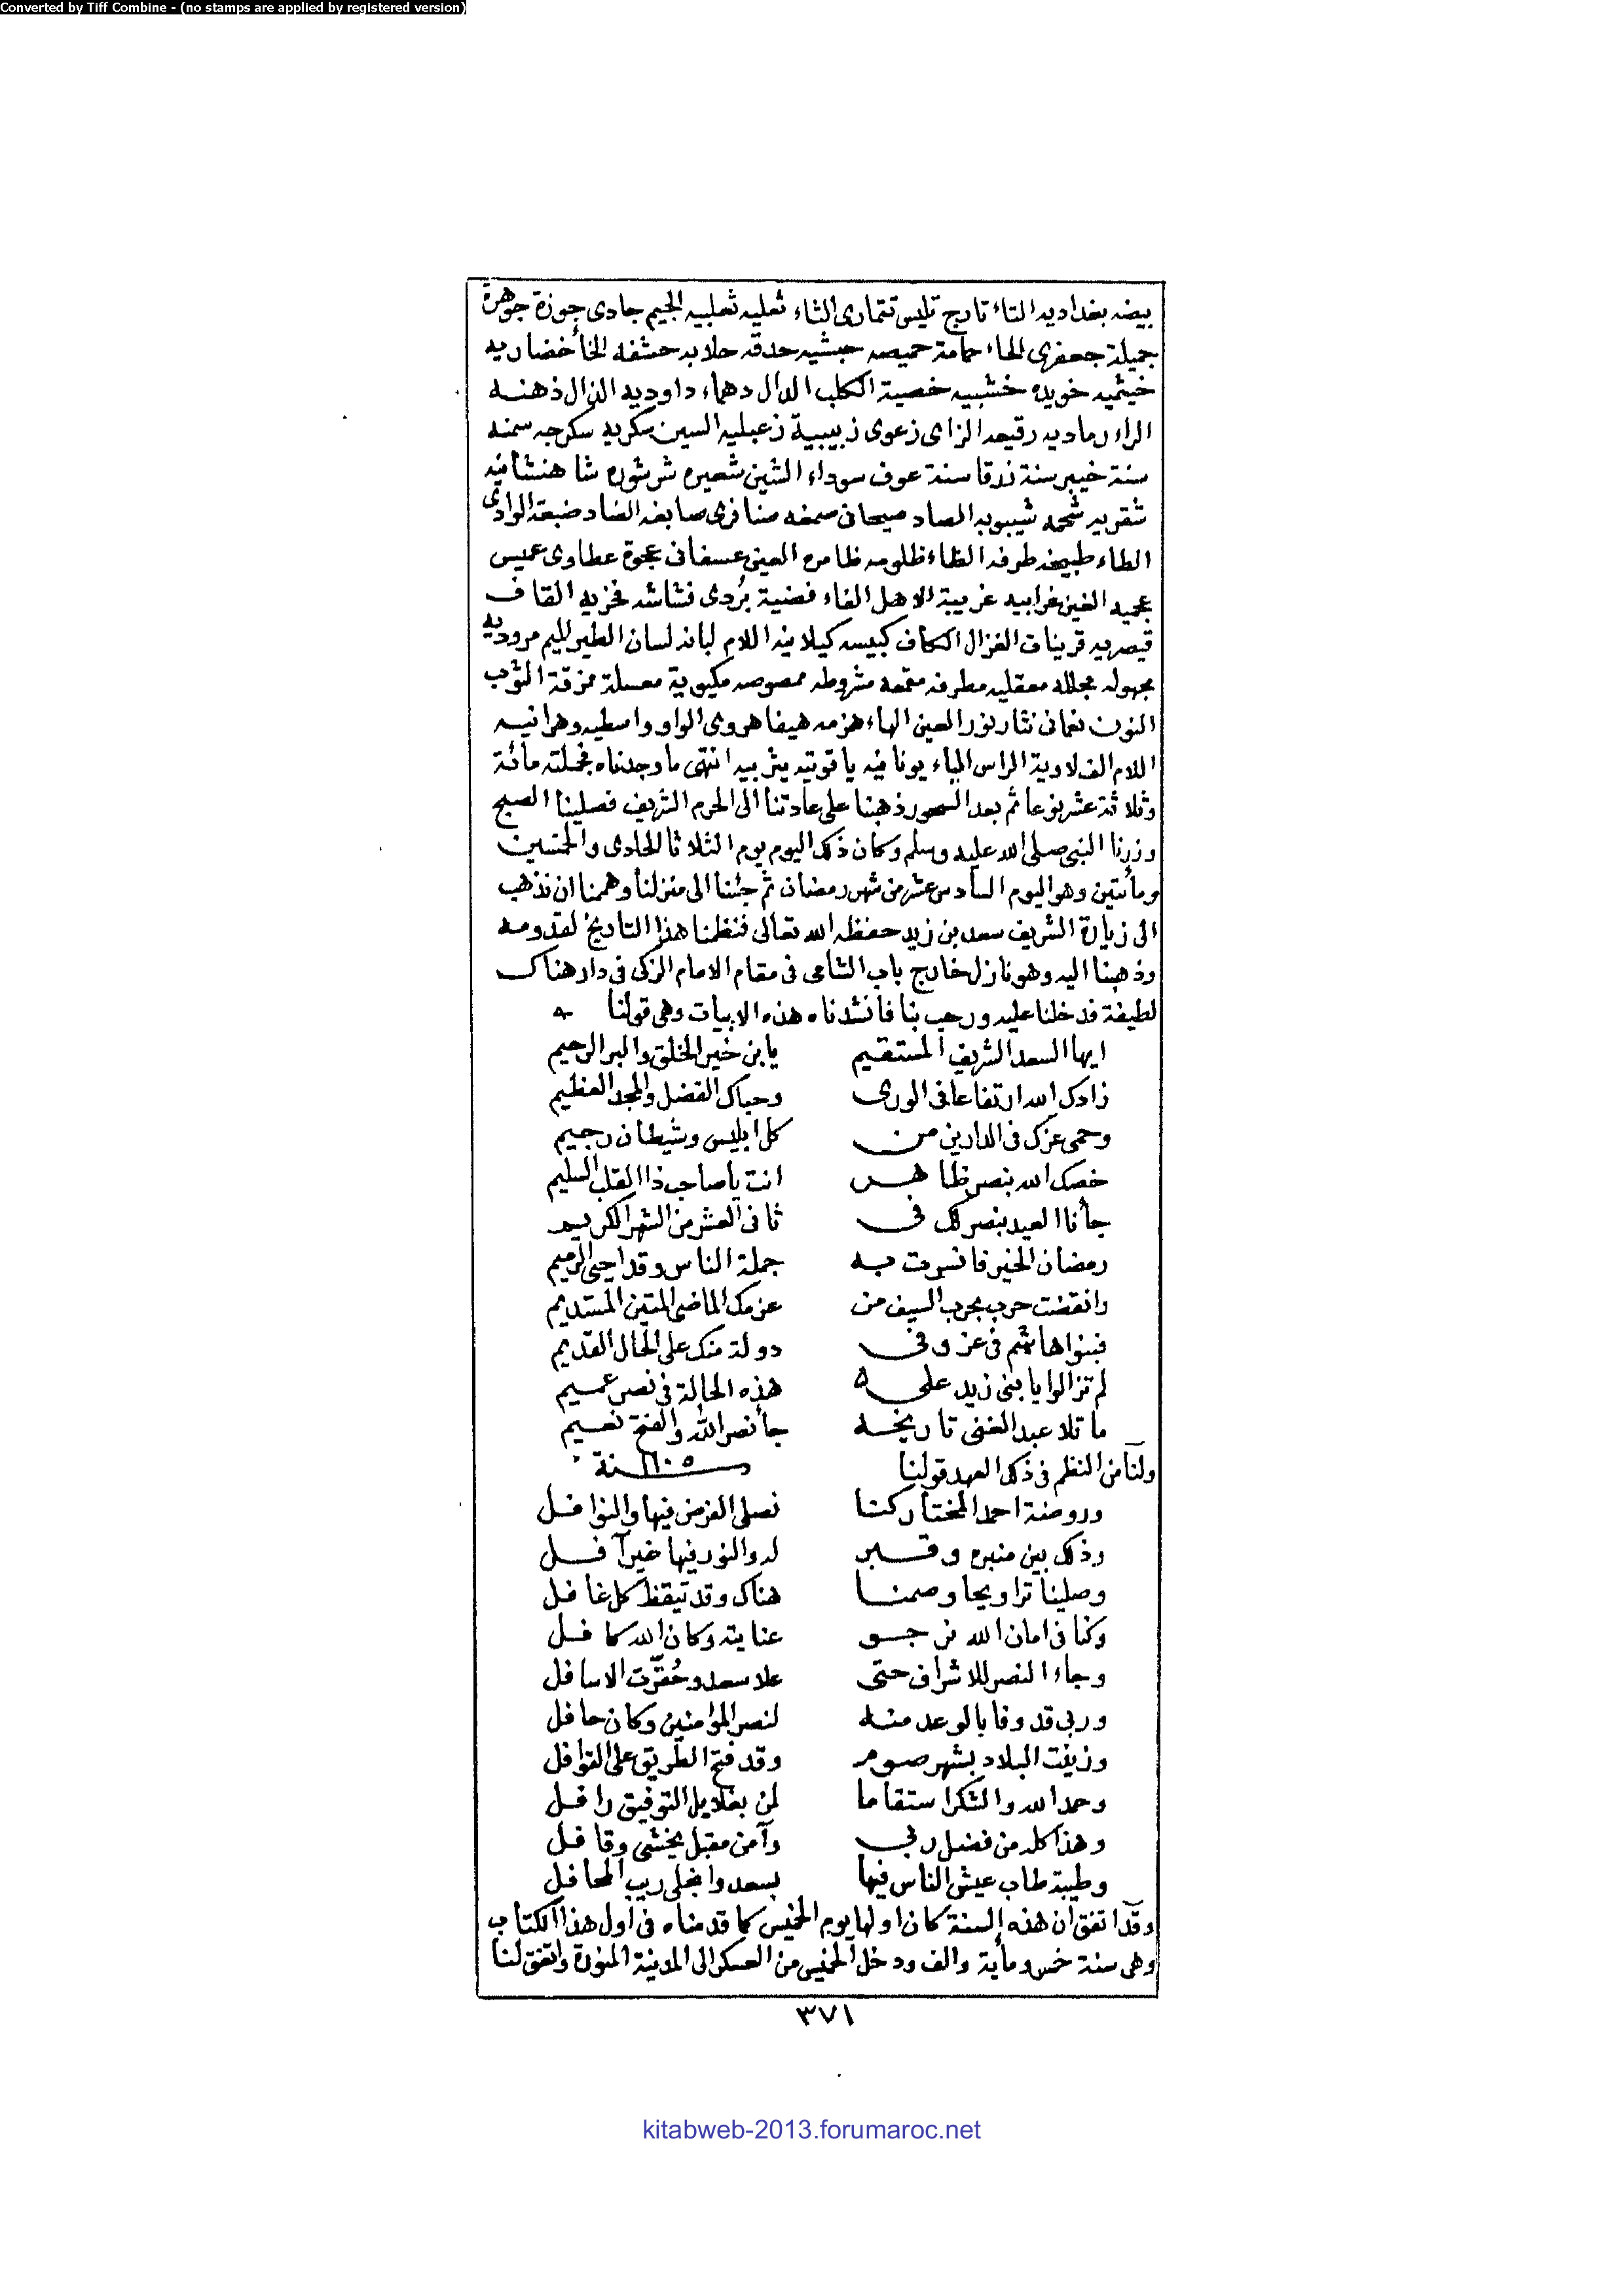 Converted by Tiff Combine - (no stamps are applied by registered version)
بيضه بغداديه التاء تارج تليس تتمارى الثاء ثعليه ثعلبيه الجيم جادى جوزة جوهرة
جميلة جعفرى الحاء حمامة حميصه حبشيه حدقه حلابه حشفه الخا خضاريه
خيثميه خويده خشبيه خصية الكلب الدال دهماء داوديه الذال ذهنه
الراء رماديه رقيعه الزاى زعوى زبيبية زعبليه السين سكريه سكرجه سمنه
سنة خيبر سنة زرقا سنة عوف سوداء الشين شعيره شرشوره شاهنشانيه
شقريه شحمه شيبوبه الصاد صيحانى صمغه صنافرى صابغه الضاد ضبعة الوادى
الطاء طبيعه طرفه الظاء ظلومه ظامره العين عسفانى عجوة عطاوى عميس
عجيه الغين غرابيه غريبية الاهل الفاء فضية بُردى فشاشه فخزيه القاف
قيصريه قرينات الغزال الكاف كبيسه كيلانيه اللام لبانه لسان الطير الميم مروديه
مجهوله مجلله معقليه مطرفه مقمعه مشروطه ممصوصه مكيوية معسلة ممزقة الثوب
النون نعمانى نثار نور العين الهاء هزمه هيفا هروى الواو واسطيه وهرانيه
اللام الف لاوية الراس الياء يونانيه ياقوتيه يثربيه انتهى ما وجدناه فجملته مائة
وثلاثة عشر نوعا ثم بعد السحور ذهبنا على عادتنا الى الحرم الشريف فصلينا الصبح
وزرنا النبى صلى الله عليه وسلم وكان ذلك اليوم يوم الثلاثا الحادى والخمسين
ومأتين وهو اليوم السادس عشر من شهر رمضان ثم جئنا الى منزلنا وهمنا ان نذهب
الى زيارة الشريف سعد بن زيد حفظه الله تعالى فنظمنا هذا التاريخ لقدومه
وذهبنا اليه وهو نازل خارج باب الشامى فى مقام الامام الزكى فى دار هناك
لطيفة فدخلنا عليه ورحب بنا فانشدناه هذه الابيات وهى قولنا
ايها السعد الشريف المستقيم يا بن خير الخلق والبر الرحيم
زادك الله ارتفاعا فى الورى وحباك الفضل والمجد العظيم
وحمى عزك فى الدارين من كل ابليس وشيطان رجيم
خصك الله بنصر ظاهر انت يا صاحب ذا القلب السليم
جأنا العيد بنصر لك فى ثانى العشر من الشهر الكريم
رمضان الخير فانسرت به جملة الناس وقد احيى الرميم
وانقضت حرب بحرب السيف من عزمك الماضى المتين المستديم
فبنوا هاشم فى عز وفى دولة منك على الحال القديم
لم تزالوا يا بنى زيد على هذه الحالة فى نصر عميم
ما تلا عبد الغنى تاريخه جأ نصر الله والفتح نعيم
ولنا من النظم فى ذلك العهد قولنا سنة ١١٠٥
وروضة احمد المختار كنا نصلى الفرض فيها والنوافل
وذلك بين منبره وقبر له والنور فيها غير آفل
وصلينا تراويحا وصمنا هناك وقد تيقظ كل غافل
وكنا فى امان الله نرجو عنايته وكان الله كافل
وجاء النصر للاشراف حتى علا سعد وحُقّرت الاسافل
وربى قد وفا بالوعد منه لنصر المؤمنين وكان حافل
وزينت البلاد بشهر صوم وقد فتح الطريق على القوافل
وحمد الله والشكر استقاما لمن بغلايل التوفيق رافل
وهذا كله من فضل ربى وآمن مقبل يخشى وقافل
وطيبة طاب عيش الناس فيها بسعد وانجلى ريب المحافل
وقد اتفق ان هذه السنة كان اولها يوم الخميس كما قدمناه فى اول هذا الكتاب
وهى سنة خمس ومأية والف ودخل الخميس من العسكر الى المدينة المنورة واتفق لنا
٣٧١
kitabweb-2013.forumaroc.net